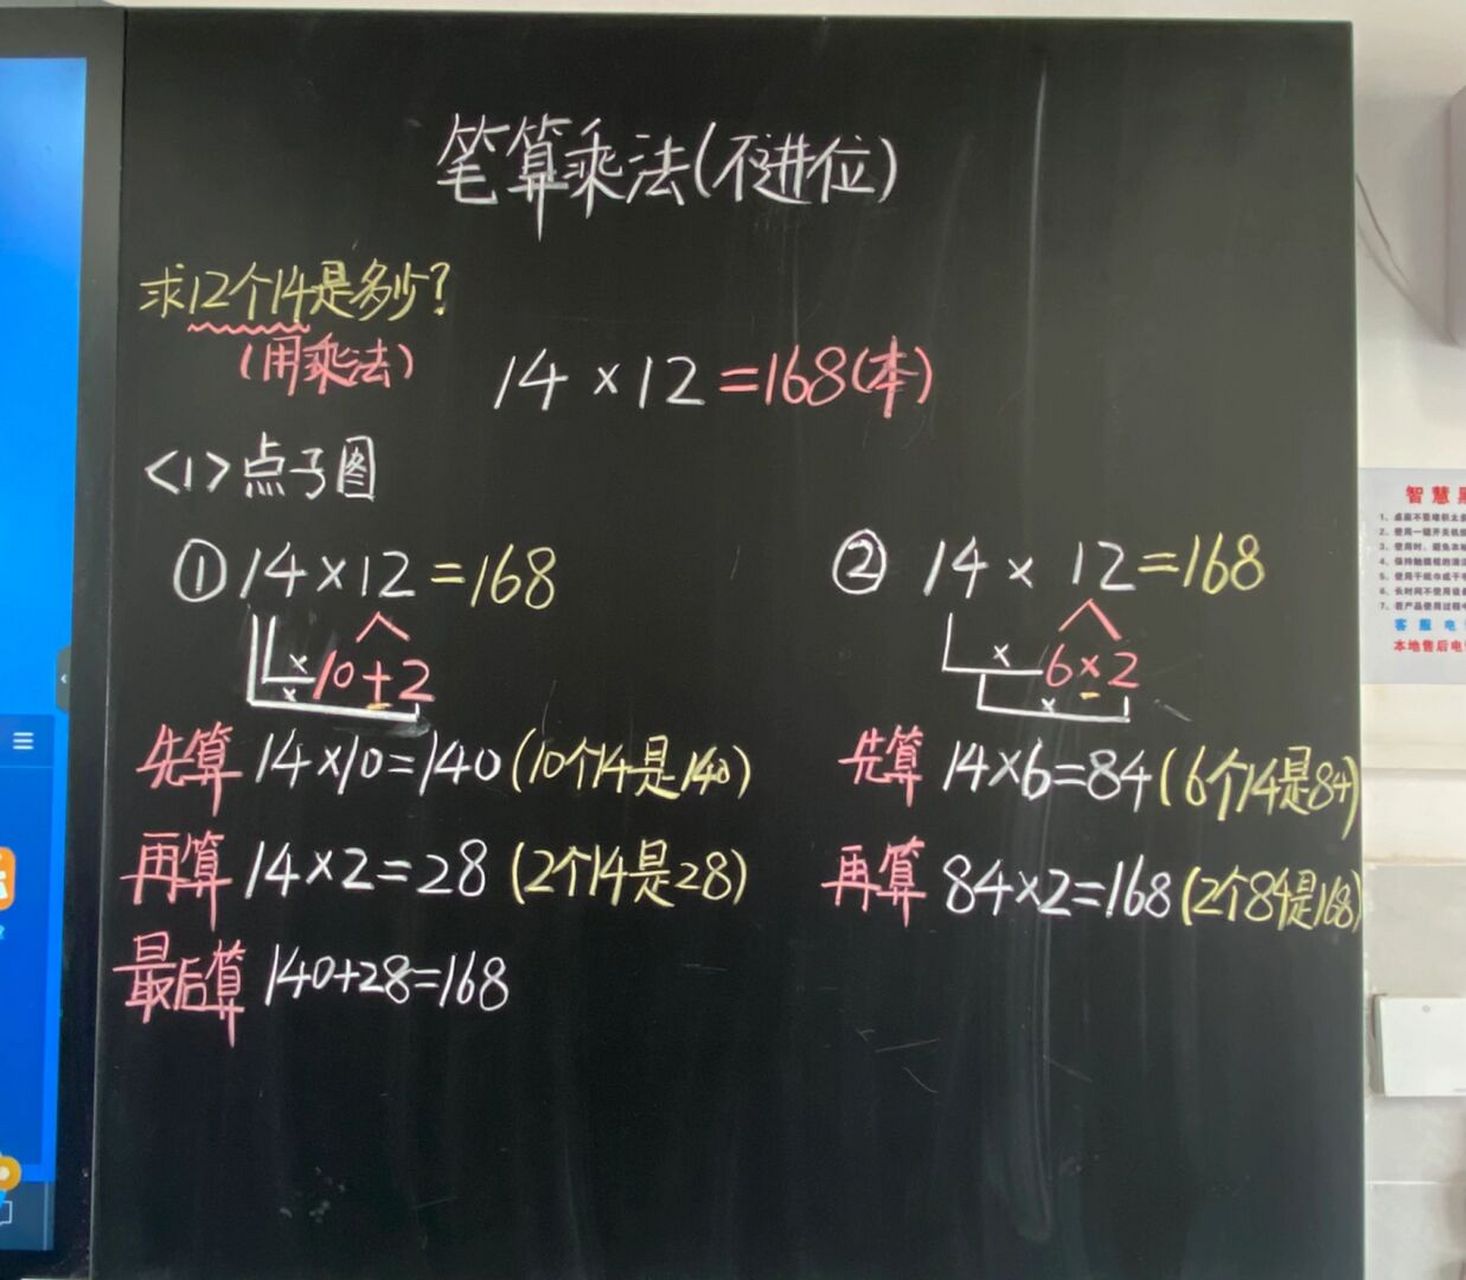 笔算乘法(不进位)
求12个14是多少?
(用乘法)
14×12=168(本)
<1>点子图
①14×12=168
× 10+2
×
先算 14×10=140(10个14是140)
再算 14×2=28(2个14是28)
最后算 140+28=168
② 14×12=168
× 6×2
×
先算 14×6=84(6个14是84)
再算 84×2=168(2个84是168)
智慧
客服电
本地售后电